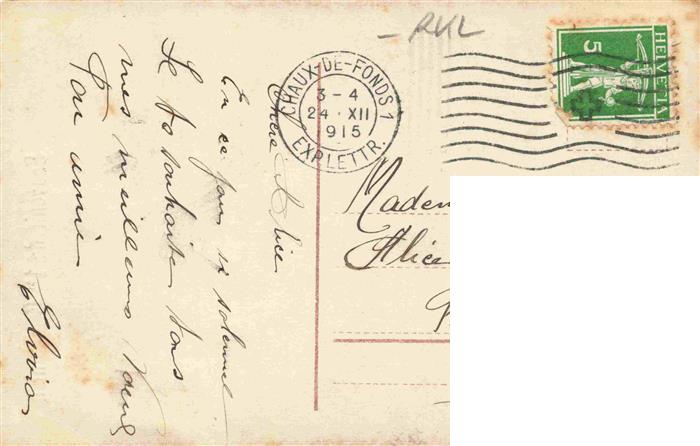 - RVL
CHAUX-DE-FONDS 1
3-4
24 XII
915
EXPL. LETTR.
HELVETIA
5
Chère Alice
En ce jour si solennel
Je te souhaites tous
mes meilleurs vœux
Ton amie
Madem
Alice